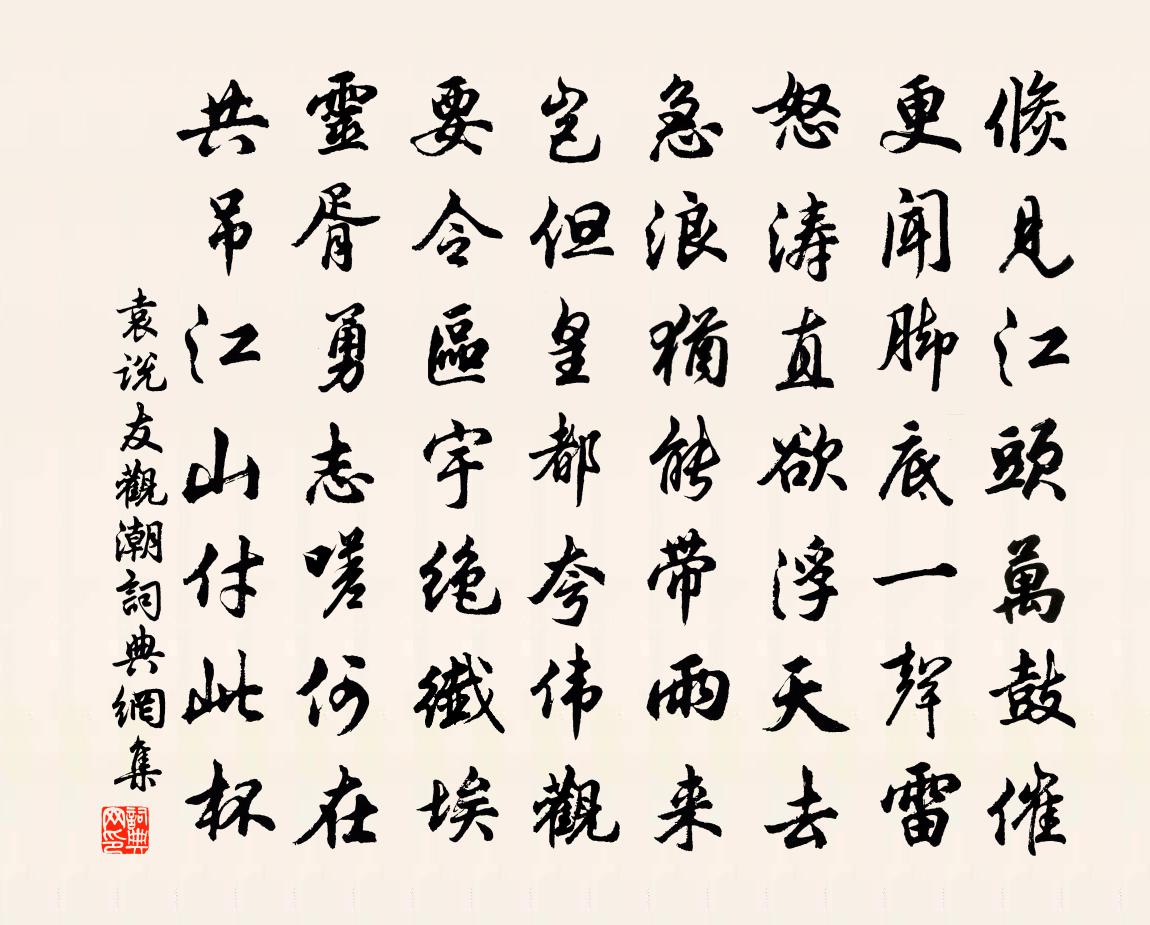 倐見江頭萬鼓催
更聞脚底一聲雷
怒濤直欲浮天去
急浪猶能带雨来
豈但皇都夸伟觀
要令區宇绝纖埃
靈胥勇志嗟何在
共吊江山付此杯
袁说友觀潮詞典網集
詞典網印